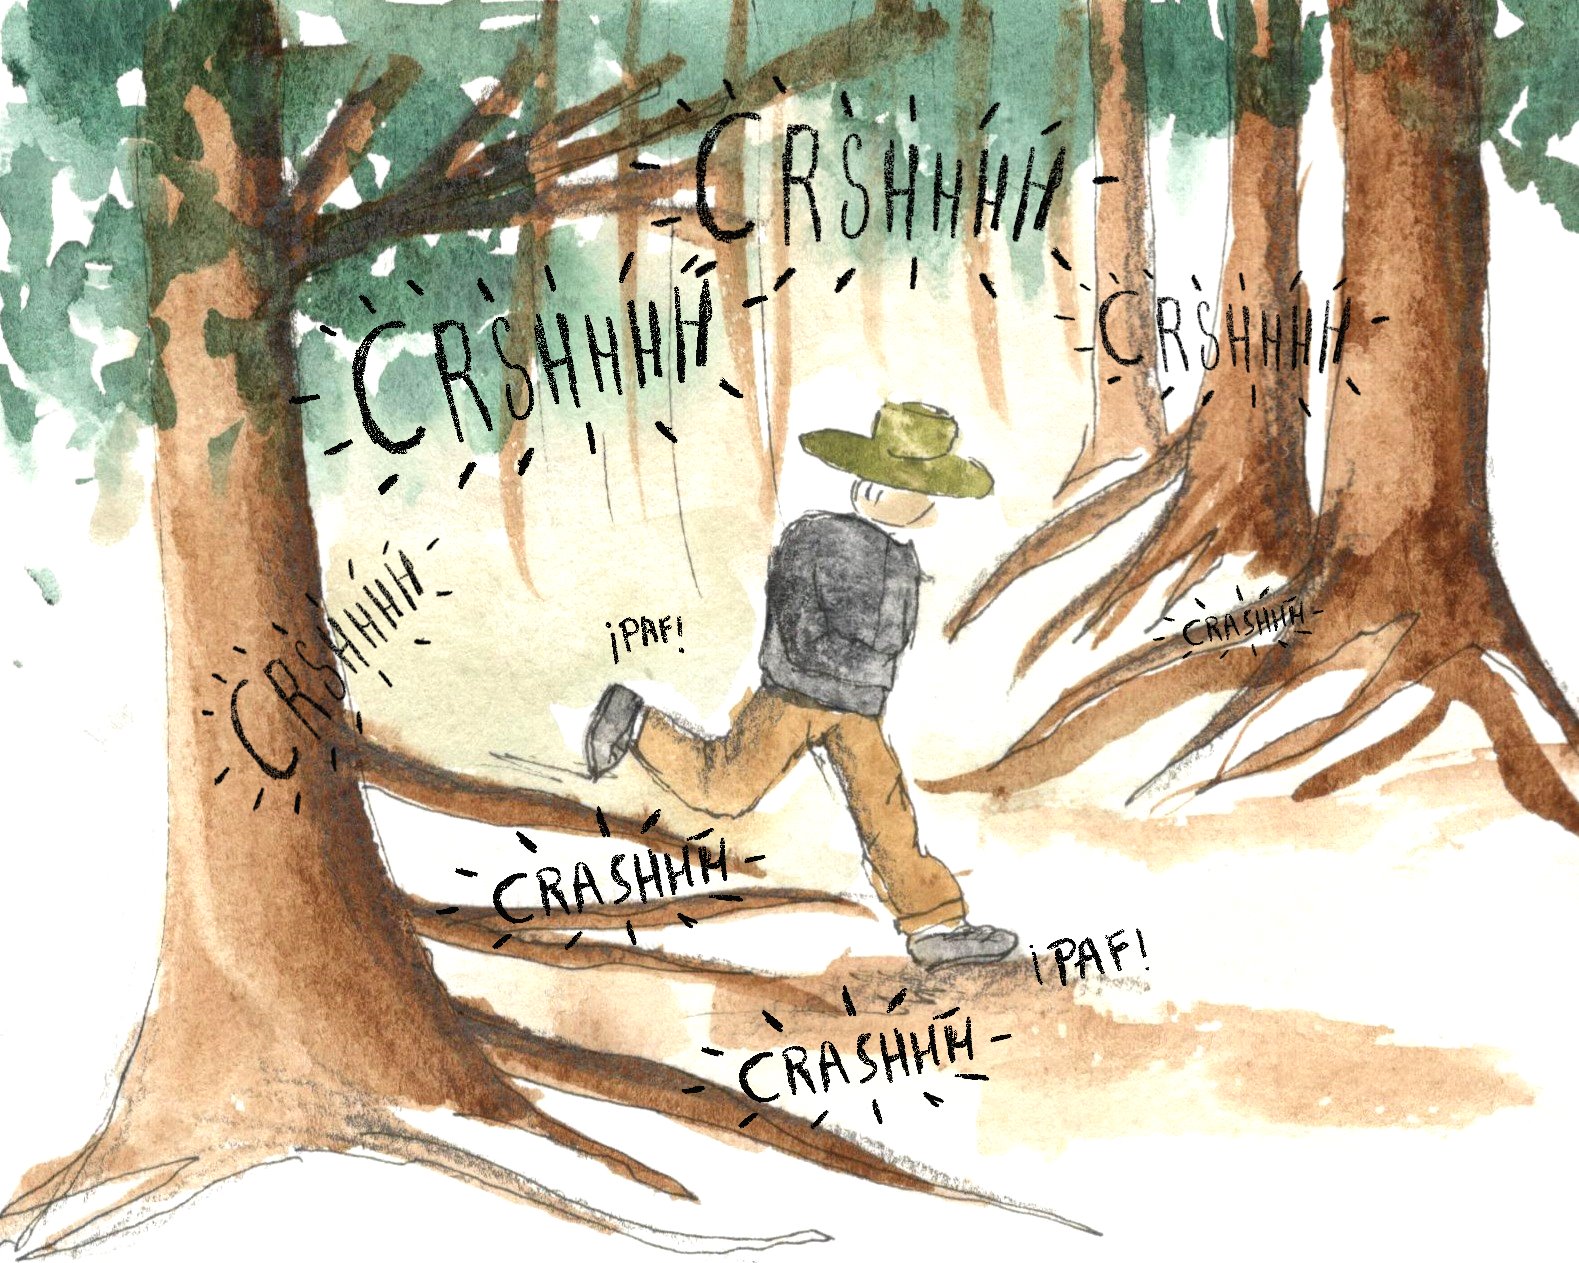 CRSHHHH
CRSHHHH
CRSHHHH
CRSHHHH
CRASHHH
¡PAF!
CRASHHH
¡PAF!
CRASHHH